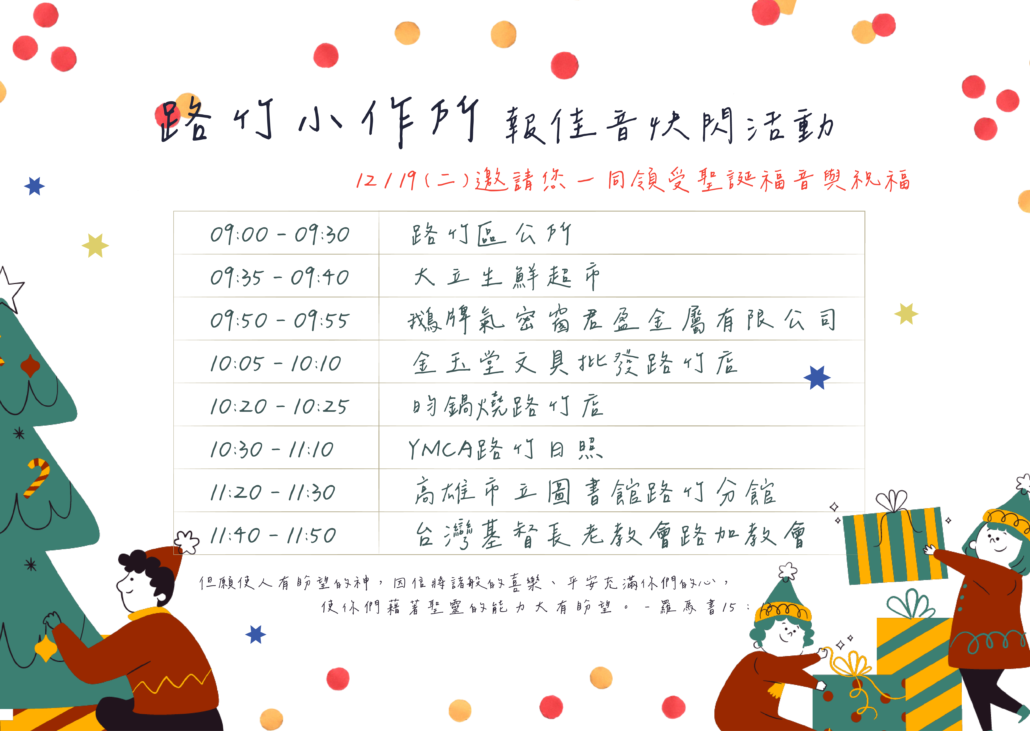 路竹小作所 報佳音快閃活動
12/19(二)邀請您一同領受聖誕福音與祝福
09:00 - 09:30 路竹區公所
09:35 - 09:40 大立生鮮超市
09:50 - 09:55 鵝牌氣密窗君盈金屬有限公司
10:05 - 10:10 金玉堂文具批發路竹店
10:20 - 10:25 昀鍋燒路竹店
10:30 - 11:10 YMCA路竹日照
11:20 - 11:30 高雄市立圖書館路竹分館
11:40 - 11:50 台灣基督長老教會路加教會
但願使人有盼望的神，因信將諸般的喜樂、平安充滿你們的心，
使你們藉著聖靈的能力大有盼望。-羅馬書15: